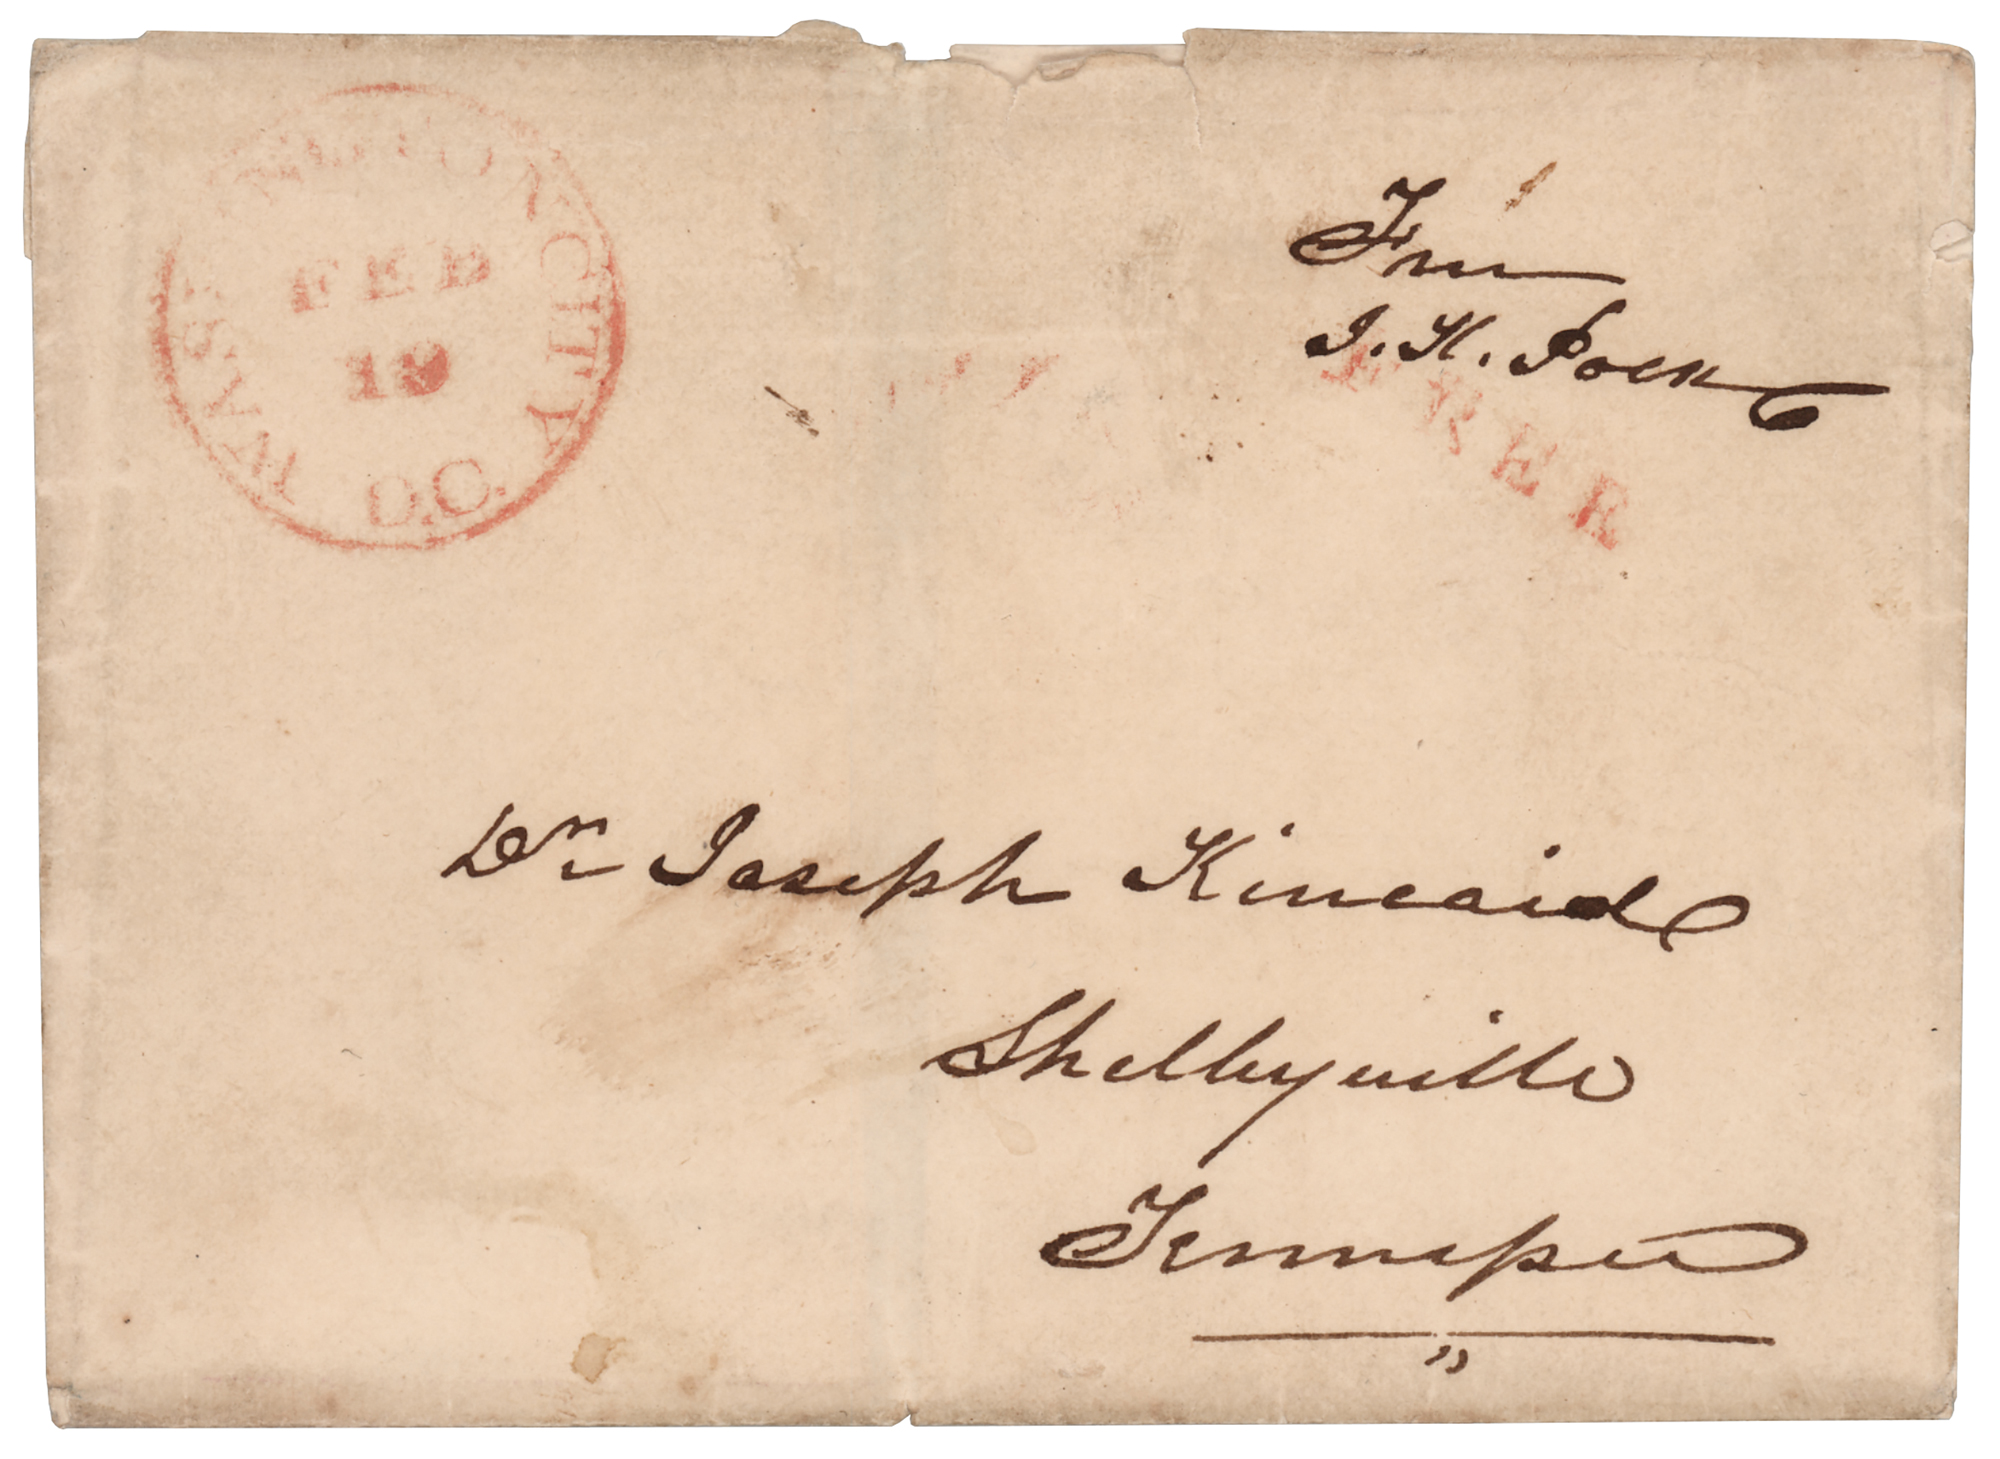 WASHINGTON CITY D.C.
FEB
19
Free
J. K. Polk
FREE
Dr Joseph Kincaid
Shellbyville
Tennessee
"